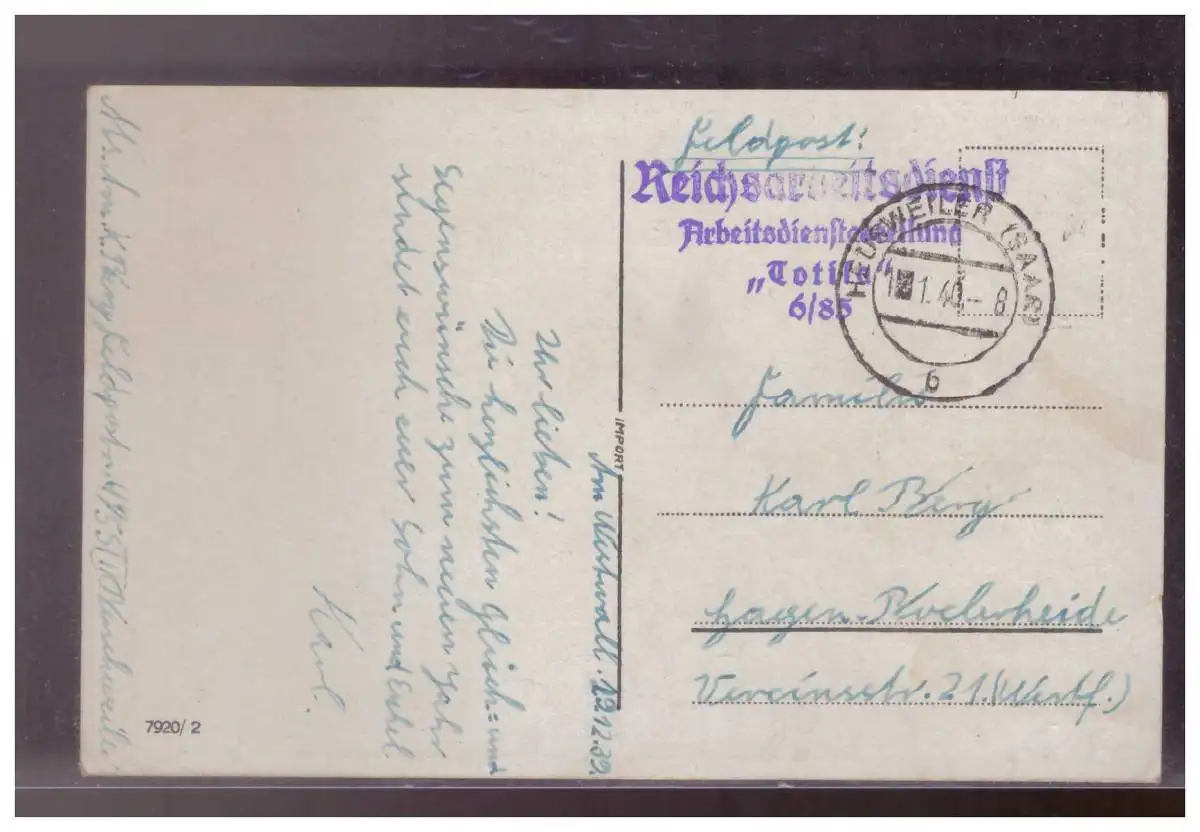 Feldpost:
Reichsarbeitsdienst
Arbeitsdienstabteilung
„Totila“
6/85
HEUSWEILER (SAAR)
1.40.-8
b
Familie
Karl Berg
Hagen-Boelerheide
Vereinsstr. 21. (Westf.)
IMPORT
Am Westwall. 29.12.39.
Ihr lieben!
Die herzlichsten Glück- und
Segenswünsche zum neuen Jahr
sendet euch euer Sohn und Enkel
Karl.
K. Berg Feldpost
7920/2